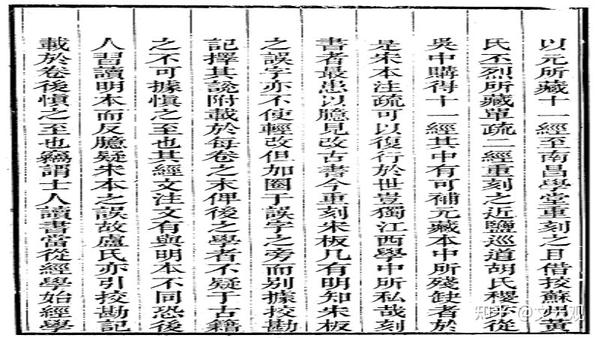 以元所藏十一經至南昌學堂重刻之且借挍蘇州黃
氏丕烈所藏單疏二經重刻之近鹽巡道胡氏稷亦從
吳中購得十一經其中有可補元藏本中所殘缺者於
是宋本注疏可以復行於世豈獨江西學中所私哉刻
書者最患以臆見改古書今重刻宋板凡有明知宋板
之誤字亦不使輕改但加圈于誤字之旁而別據挍勘
記擇其說附載於每卷之末俾後之學者不疑于古籍
之不可據慎之至也其經文注文有與明本不同恐後
人習讀明本而反臆疑宋本之誤故盧氏亦引挍勘記
載於卷後慎之至也竊謂士人讀書當從經學始經學
知乎 @文史观